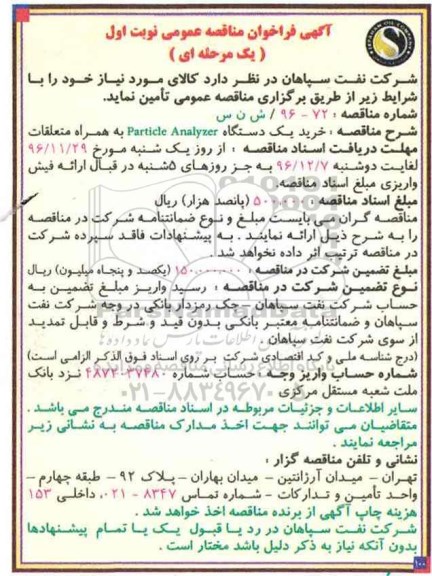 آگهی فراخوان مناقصه عمومی نوبت اول
( یک مرحله ای )
شرکت نفت سپاهان در نظر دارد کالای مورد نیاز خود را با
شرایط زیر از طریق برگزاری مناقصه عمومی تأمین نماید.
شماره مناقصه : ۷۲ - ۹۶ / ش ن س
شرح مناقصه : خرید یک دستگاه Particle Analyzer به همراه متعلقات
مهلت دریافت اسناد مناقصه : از روز یک شنبه مورخ ۹۶/۱۱/۲۹
لغایت دوشنبه ۹۶/۱۲/۷ به جز روزهای ۵شنبه در قبال ارائه فیش
واریزی مبلغ اسناد مناقصه
مبلغ اسناد مناقصه : ۵۰۰,۰۰۰ (پانصد هزار) ریال
مناقصه گران می بایست مبلغ و نوع ضمانتنامه شرکت در مناقصه
را به شرح ذیل ارائه نمایند . به پیشنهادات فاقد سپرده شرکت
در مناقصه ترتیب اثر داده نخواهد شد .
مبلغ تضمین شرکت در مناقصه : ۱۵۰,۰۰۰,۰۰۰ (یکصد و پنجاه میلیون) ریال
نوع تضمین شرکت در مناقصه : رسید واریز مبلغ تضمین به
حساب شرکت نفت سپاهان – چک رمزدار بانکی در وجه شرکت نفت
سپاهان و ضمانتنامه معتبر بانکی بدون قید و شرط و قابل تمدید
از سوی شرکت نفت سپاهان
(درج شناسه ملی و کد اقتصادی شرکت بر روی اسناد فوق الذکر الزامی است)
شماره حساب واریز وجه : حساب شماره نزد بانک
ملت شعبه مستقل مرکزی
سایر اطلاعات و جزئیات مربوطه در اسناد مناقصه مندرج می باشد .
متقاضیان می توانند جهت اخذ مدارک مناقصه به نشانی زیر
مراجعه نمایند .
نشانی و تلفن مناقصه گزار :
تهران – میدان آرژانتین – میدان بهاران – پلاک ۹۲ – طبقه چهارم –
واحد تأمین و تدارکات – شماره تماس ۸۳۴۷ - ۰۲۱ داخلی ۱۵۳
هزینه چاپ آگهی از برنده مناقصه اخذ خواهد شد .
شرکت نفت سپاهان در رد یا قبول یک یا تمام پیشنهادها
بدون آنکه نیاز به ذکر دلیل باشد مختار است .
ParsNamadData
۰۲۱-۸۸۳۴۹۶۷۰